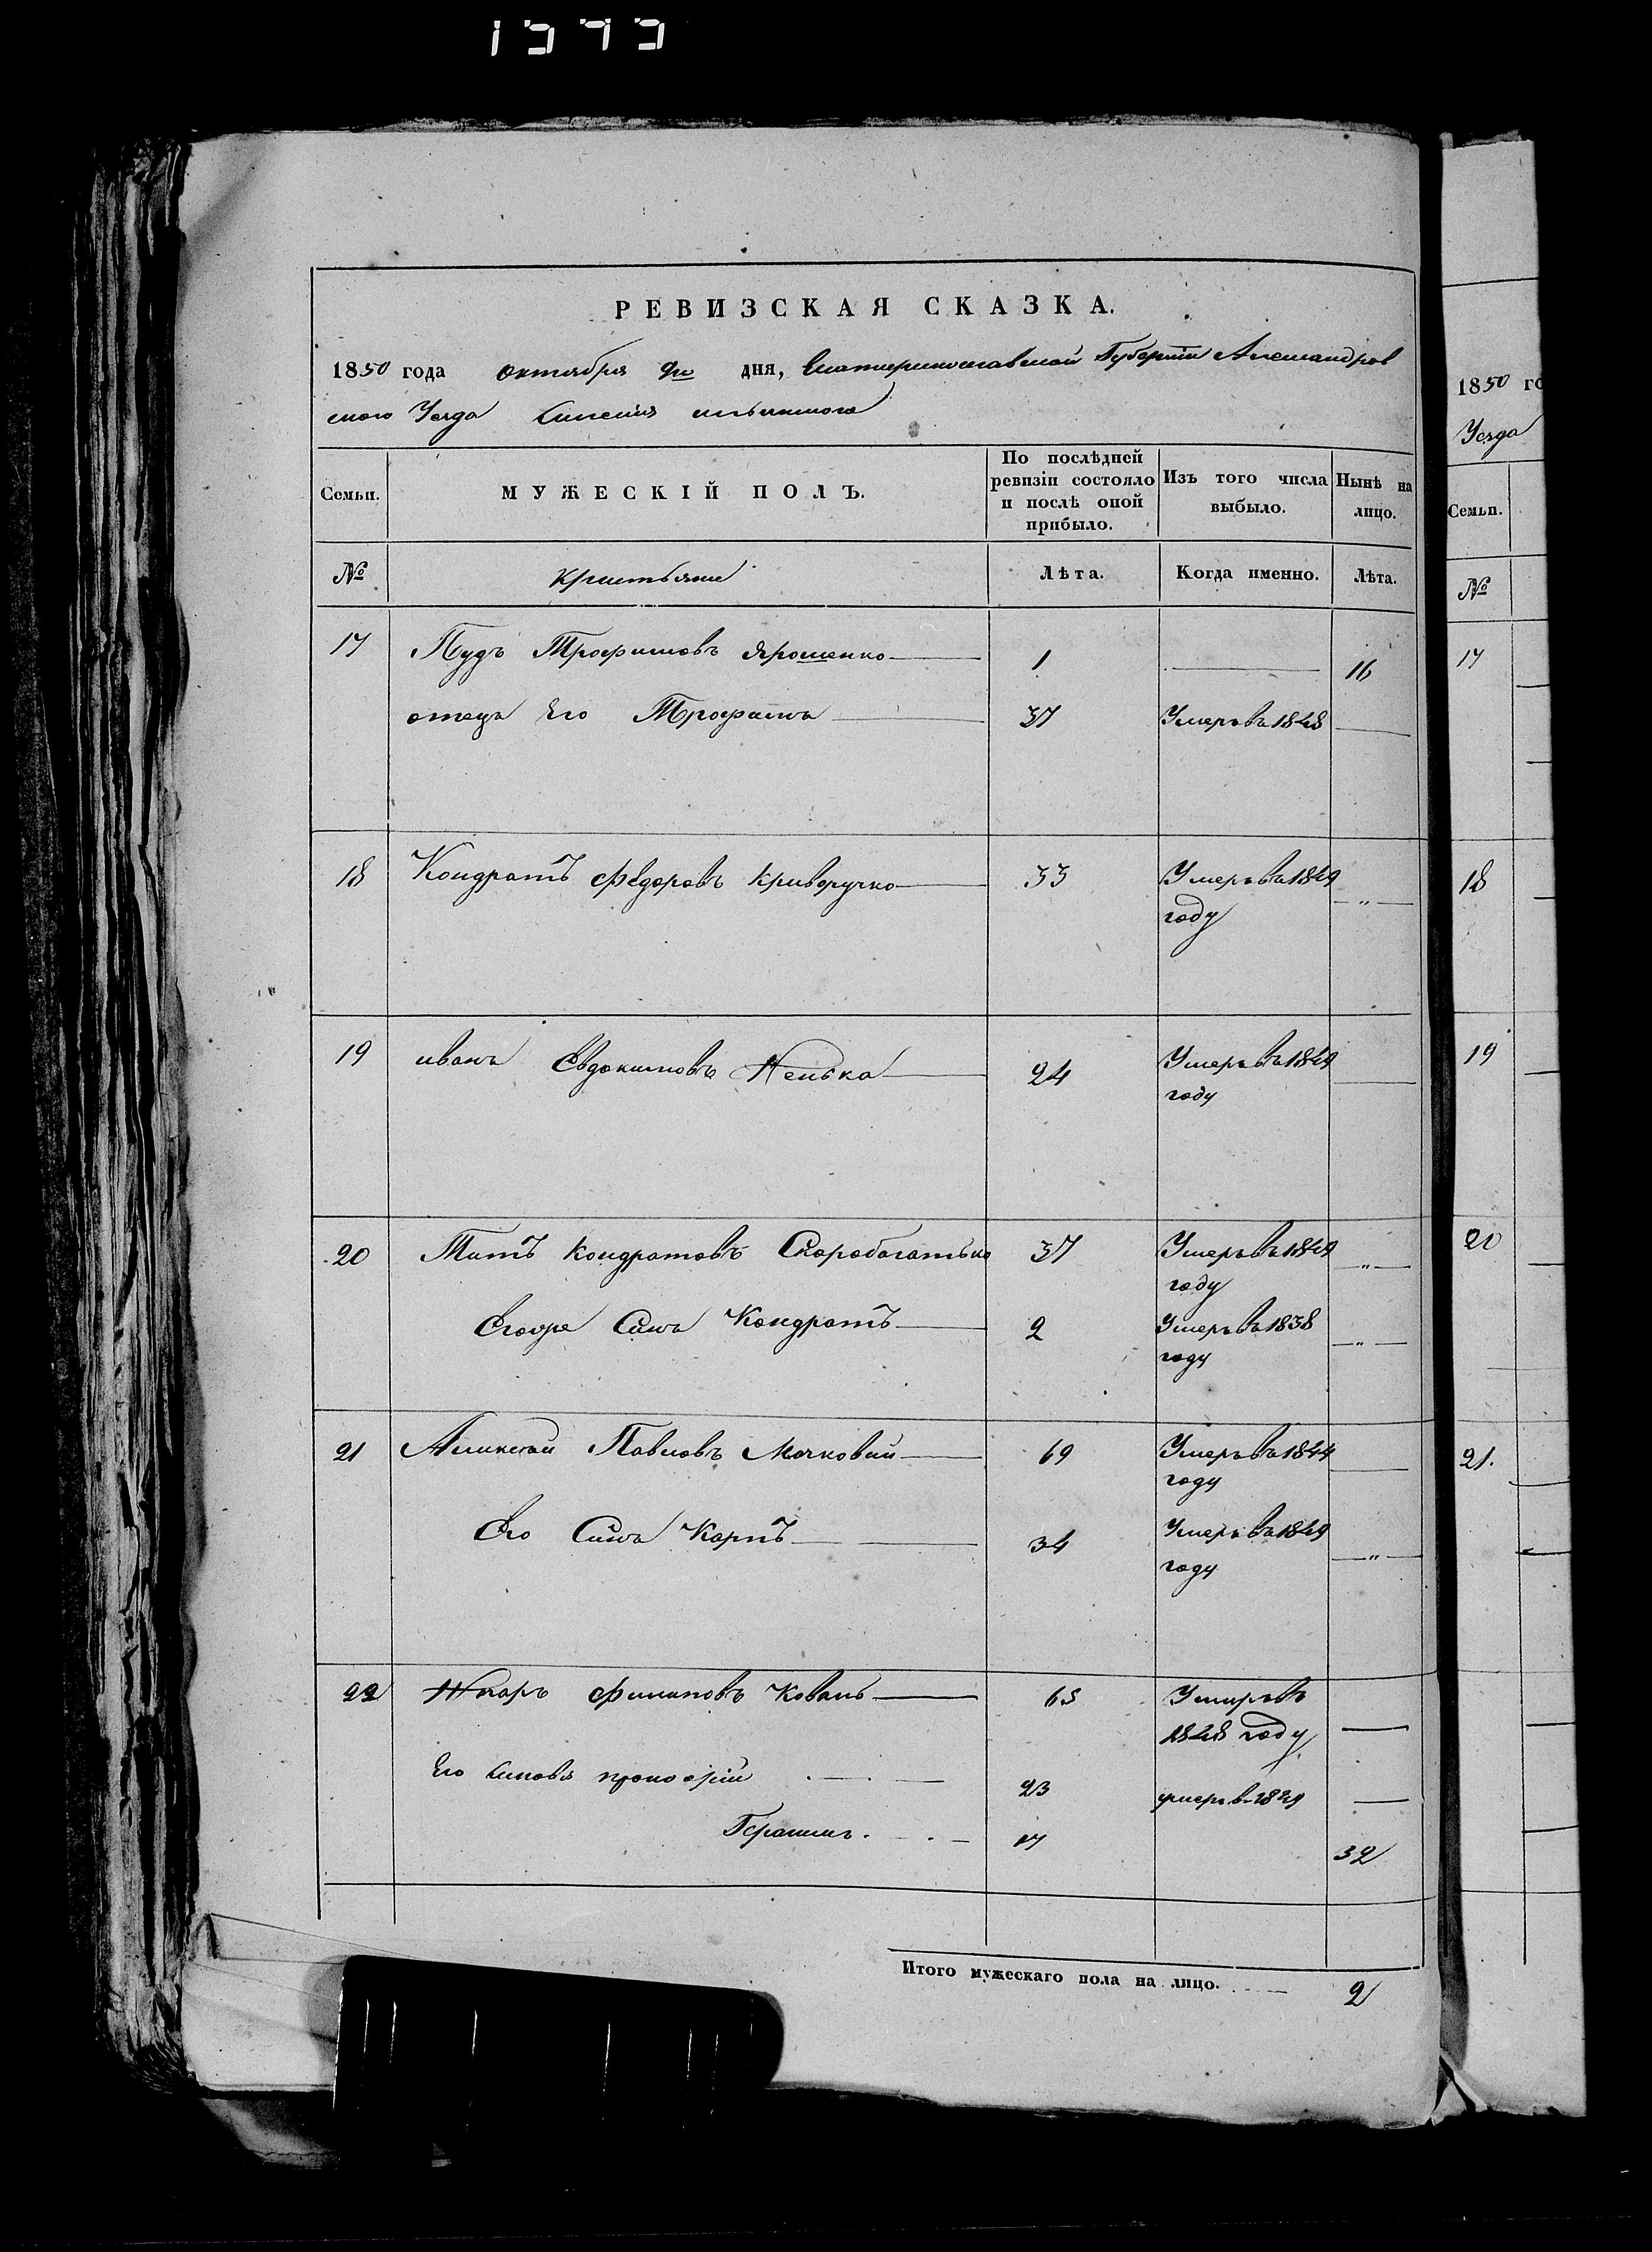 1595
РЕВИЗСКАЯ СКАЗКА.
1850 года октября дня, Екатеринославской Губернiи Александров
ского Уезда Имения
Семьи. МУЖЕСКІЙ ПОЛЪ. По послѣдней ревизіи состояло и послѣ оной прибыло. Изъ того числа выбыло. Нынѣ на лицо.
№ Крестьяне Лѣта. Когда именно. Лѣта.
17 Пудъ Трофимовъ Ярошенко 1 16
отецъ Его Трофимъ 37 Умеръ въ 1848
18 Кондратъ Федоровъ Криворучко 33 Умеръ въ 1849
году
19 иванъ Евдокимовъ Ненька 24 Умеръ въ 1849
году
20 Титъ Кондратовъ Скоробогатько 37 Умеръ въ 1849
году
Егоже Синъ Кондратъ 2 Умеръ въ 1838
году
21 Алексей Павловъ Мачковий 69 Умеръ въ 1844
году
Его Синъ Карпъ 34 Умеръ въ 1849
году
22 Филиповъ Коваль 65 Умеръ въ
1848 году
Его Синовя прокофiй 23 умеръ в 1849
Герасимъ. 17 32
Итого мужескаго пола на лицо. 2
1850 го
Уезда
Семьи.
№
17
18
19
20
21.